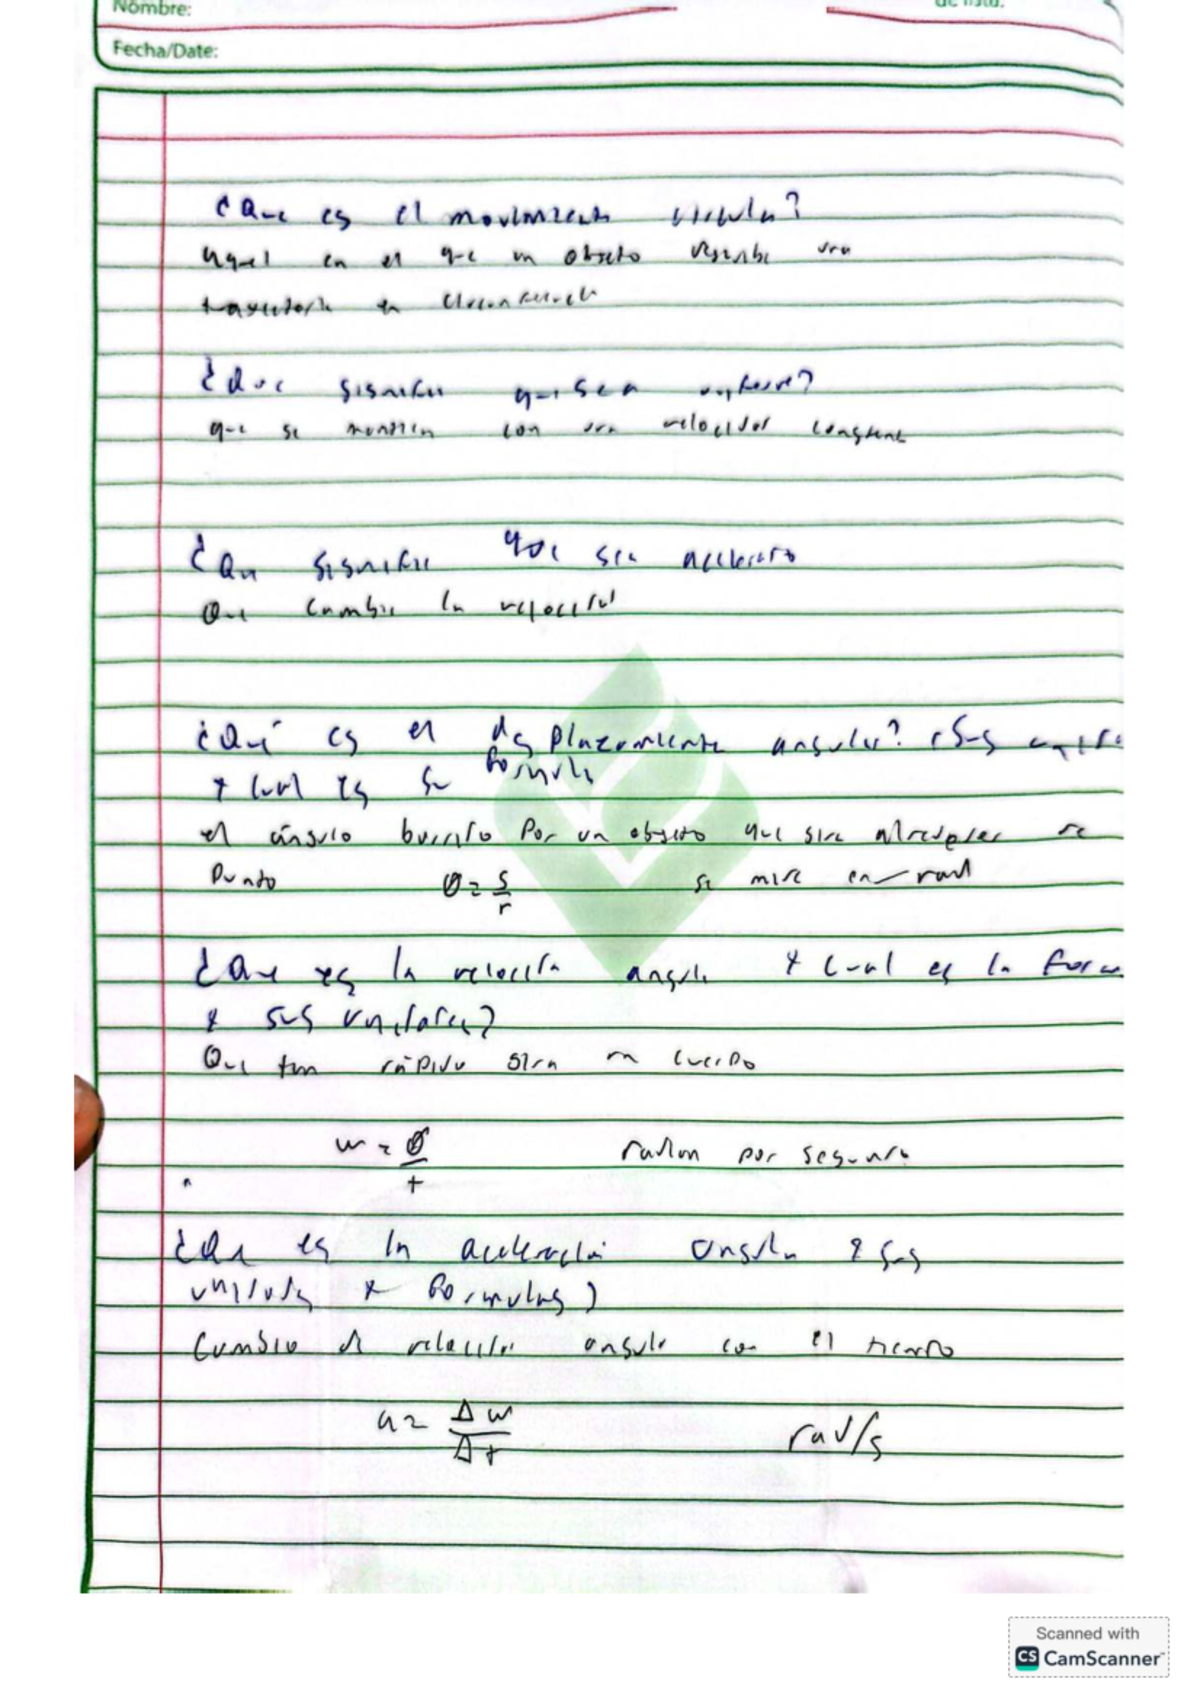 Nombre:
de lista:
Fecha/Date:
¿Que es el movimiento circular?
aquel en el que un objeto describe una
trayectoria en circunferencia
¿Que significa que sea uniforme?
que se mantien con una velocidad constante
¿Que significa que sea acelerado
Que cambie la velocidad
¿Qué es el desplazamiento angular? ¿Sus
y cual es su formula
el ángulo barrido por un objeto que gira alrededor de
punto θ = s/r se mide en rad
¿Que es la velocida angula y cual es la form
y sus unidades?
Que tan rápido gira un cuerpo
w = θ/t radian por segundo
¿Que es la aceleración angula y sus
unidades y formulas?
Cambio de velocidad angula con el tiempo
a = Δw/Δt rad/s
Scanned with
CS CamScanner